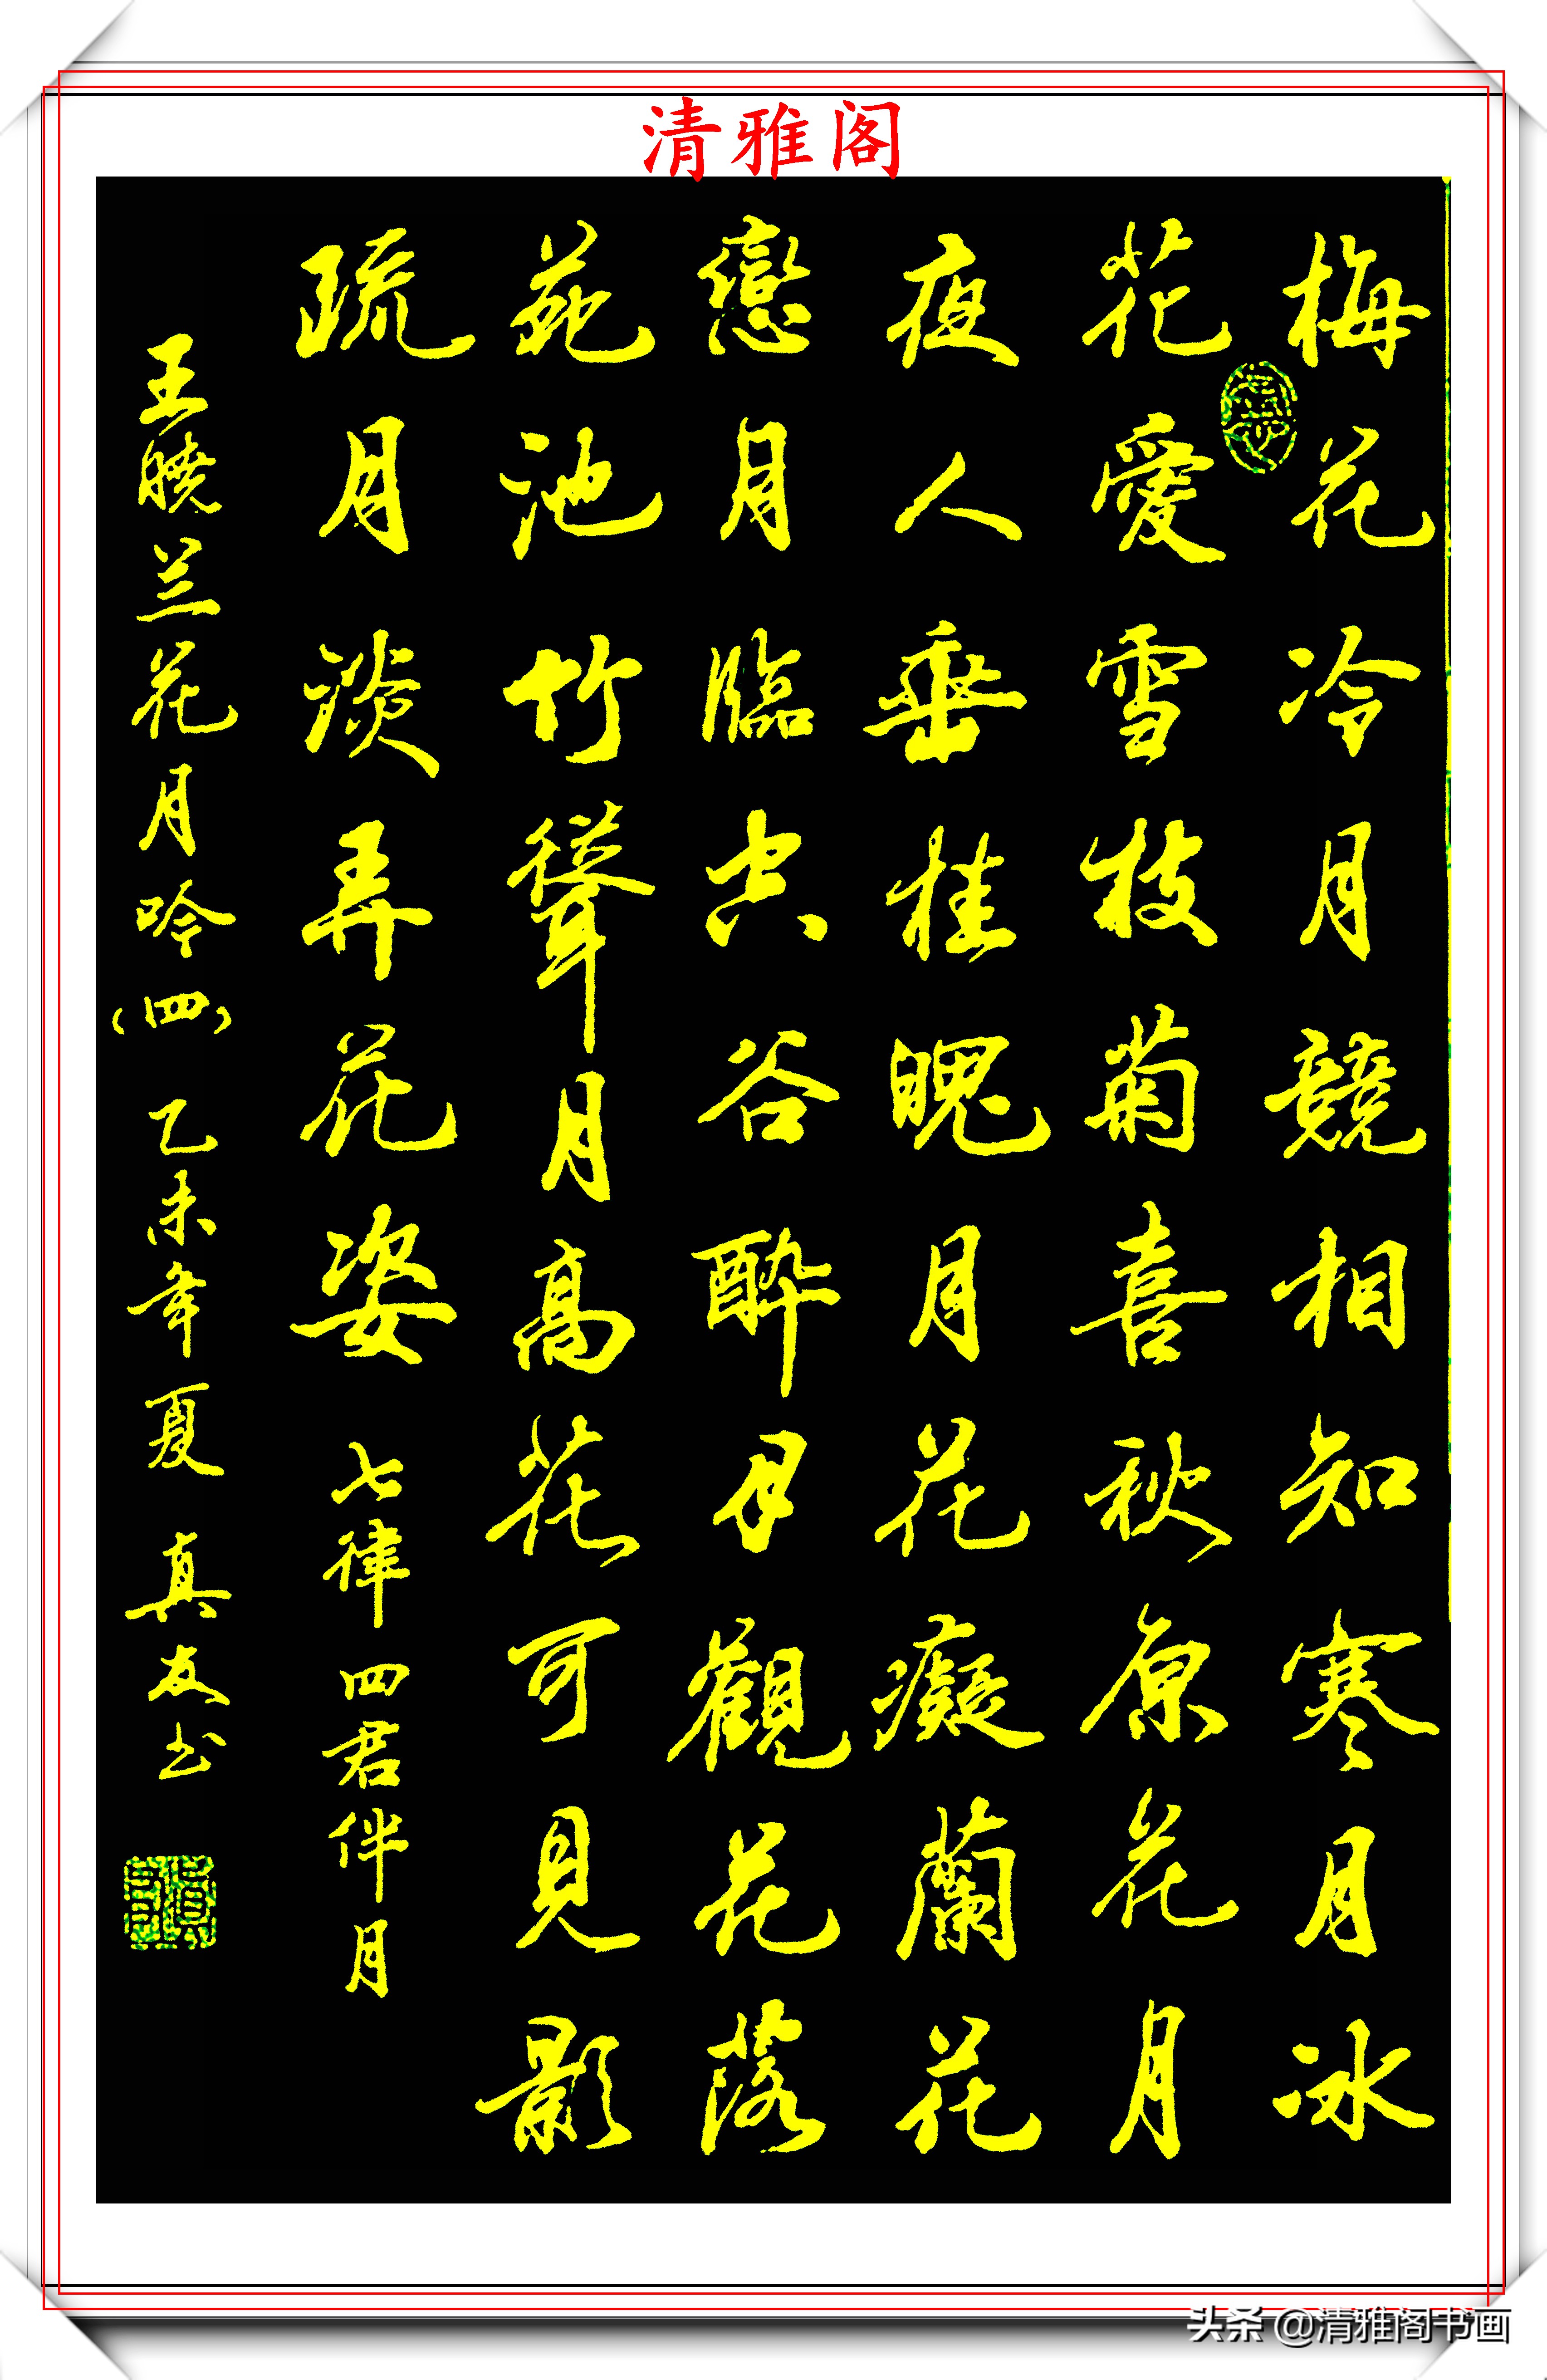 清雅阁
梅花冷月競相知寒月冰
花愛雪枝菊喜秋原花月
夜人垂桂魄月花癡蘭花
戀月臨空谷醉月觀花落
苑池竹聳月高花可見影
疏月淡弄花姿 七律四君伴月
王晓兰花月吟(四) 乙未年夏 真友书
头条 @清雅阁书画